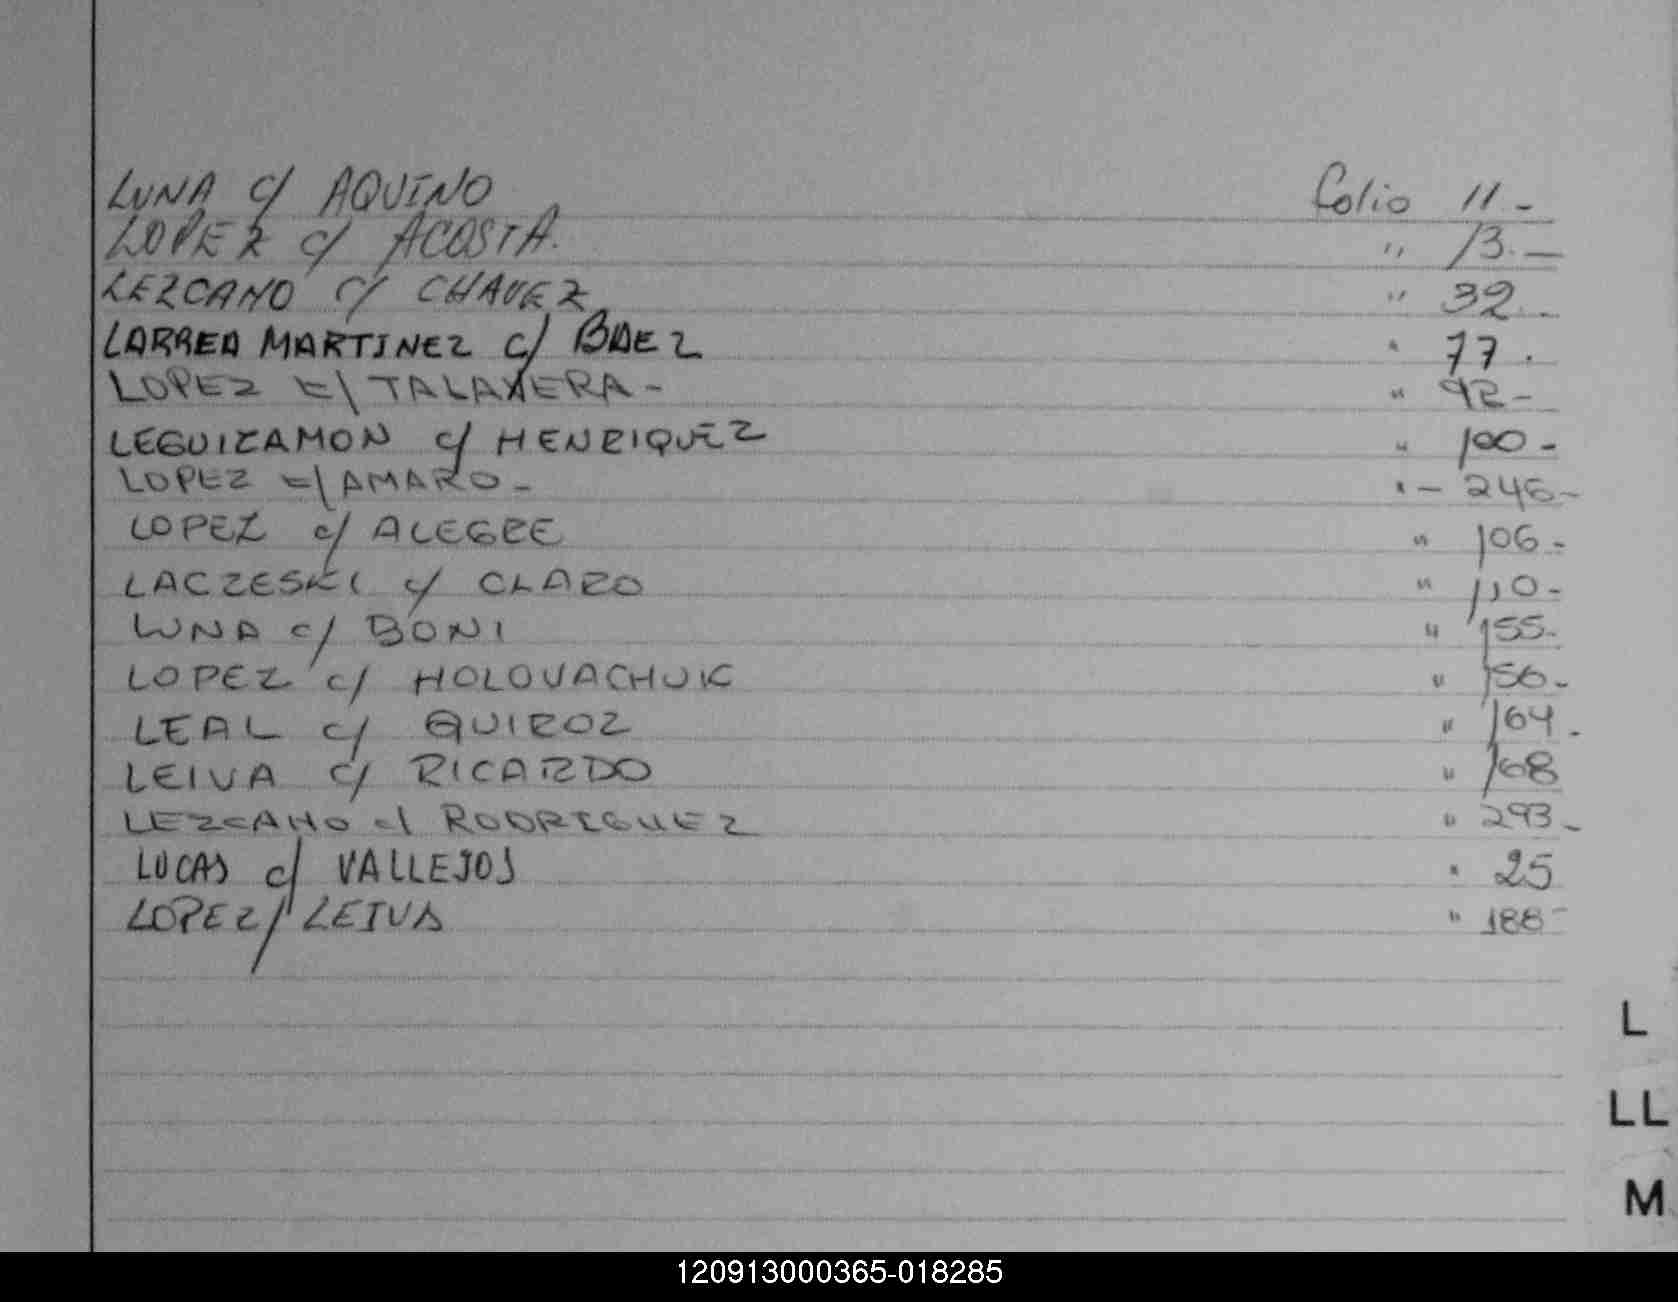 LUNA c/ AQUINO folio 11.-
LOPEZ c/ ACOSTA. " 13.-
LEZCANO c/ CHAVEZ " 32.
LARREA MARTINEZ c/ BAEZ " 77.
LOPEZ c/ TALAVERA- " 92-
LEGUIZAMON c/ HENRIQUEZ " 100-
LOPEZ c/ AMARO- "- 246-
LOPEZ c/ ALEGRE " 106-
LACZESKI c/ CLARO " 110-
LUNA c/ BONI " 155-
LOPEZ c/ HOLOVACHUK " 156-
LEAL c/ QUIROZ " 164.
LEIVA c/ RICARDO " 168
LEZCANO c/ RODRIGUEZ " 293-
LUCAS c/ VALLEJOS " 25
LOPEZ / LEIVA " 188-
L
LL
M
120913000365-018285